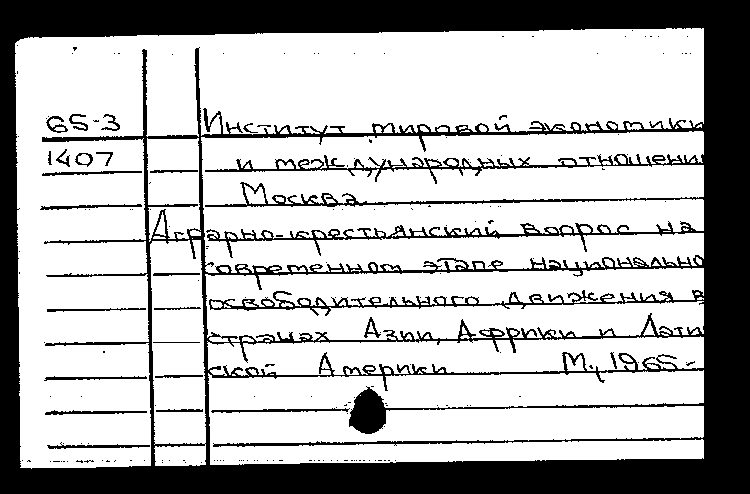 65-3 Институт мировой экономики
1407 и международных отношени
Москва.
Аграрно-крестьянский вопрос на
современном этапе национально
освободительного движения в
странах Азии, Африки и Лати
ской Америки. М., 1965.-